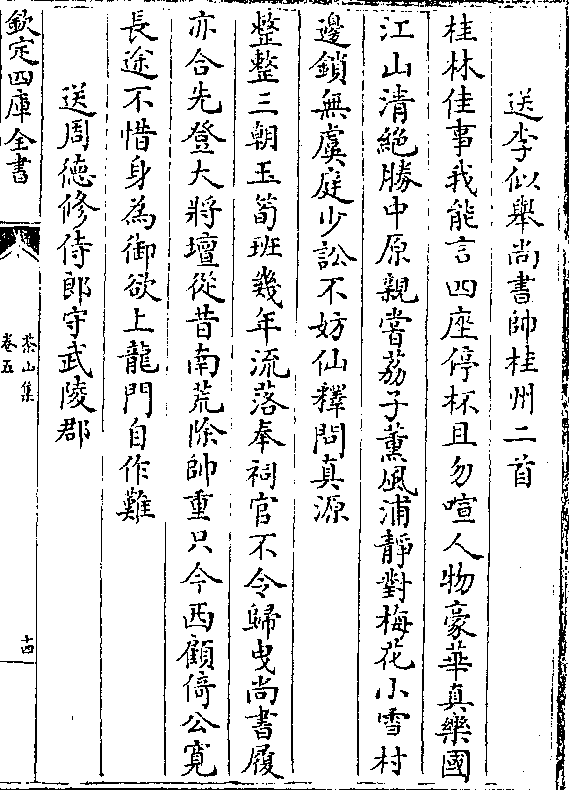 送李似舉尚書帥桂州二首
桂林佳事我能言四座停杯且勿喧人物豪華真樂國
江山清絶勝中原親嘗荔子薰風浦靜對梅花小雪村
邊鎖無虞庭少訟不妨仙釋問真源
整整三朝玉筍班幾年流落奉祠官不令歸曳尚書履
亦合先登大將壇從昔南荒除帥重只今西顧倚公寛
長途不惜身為御欲上龍門自作難
送周德修侍郎守武陵郡
欽定四庫全書
茶山集
卷五
十四